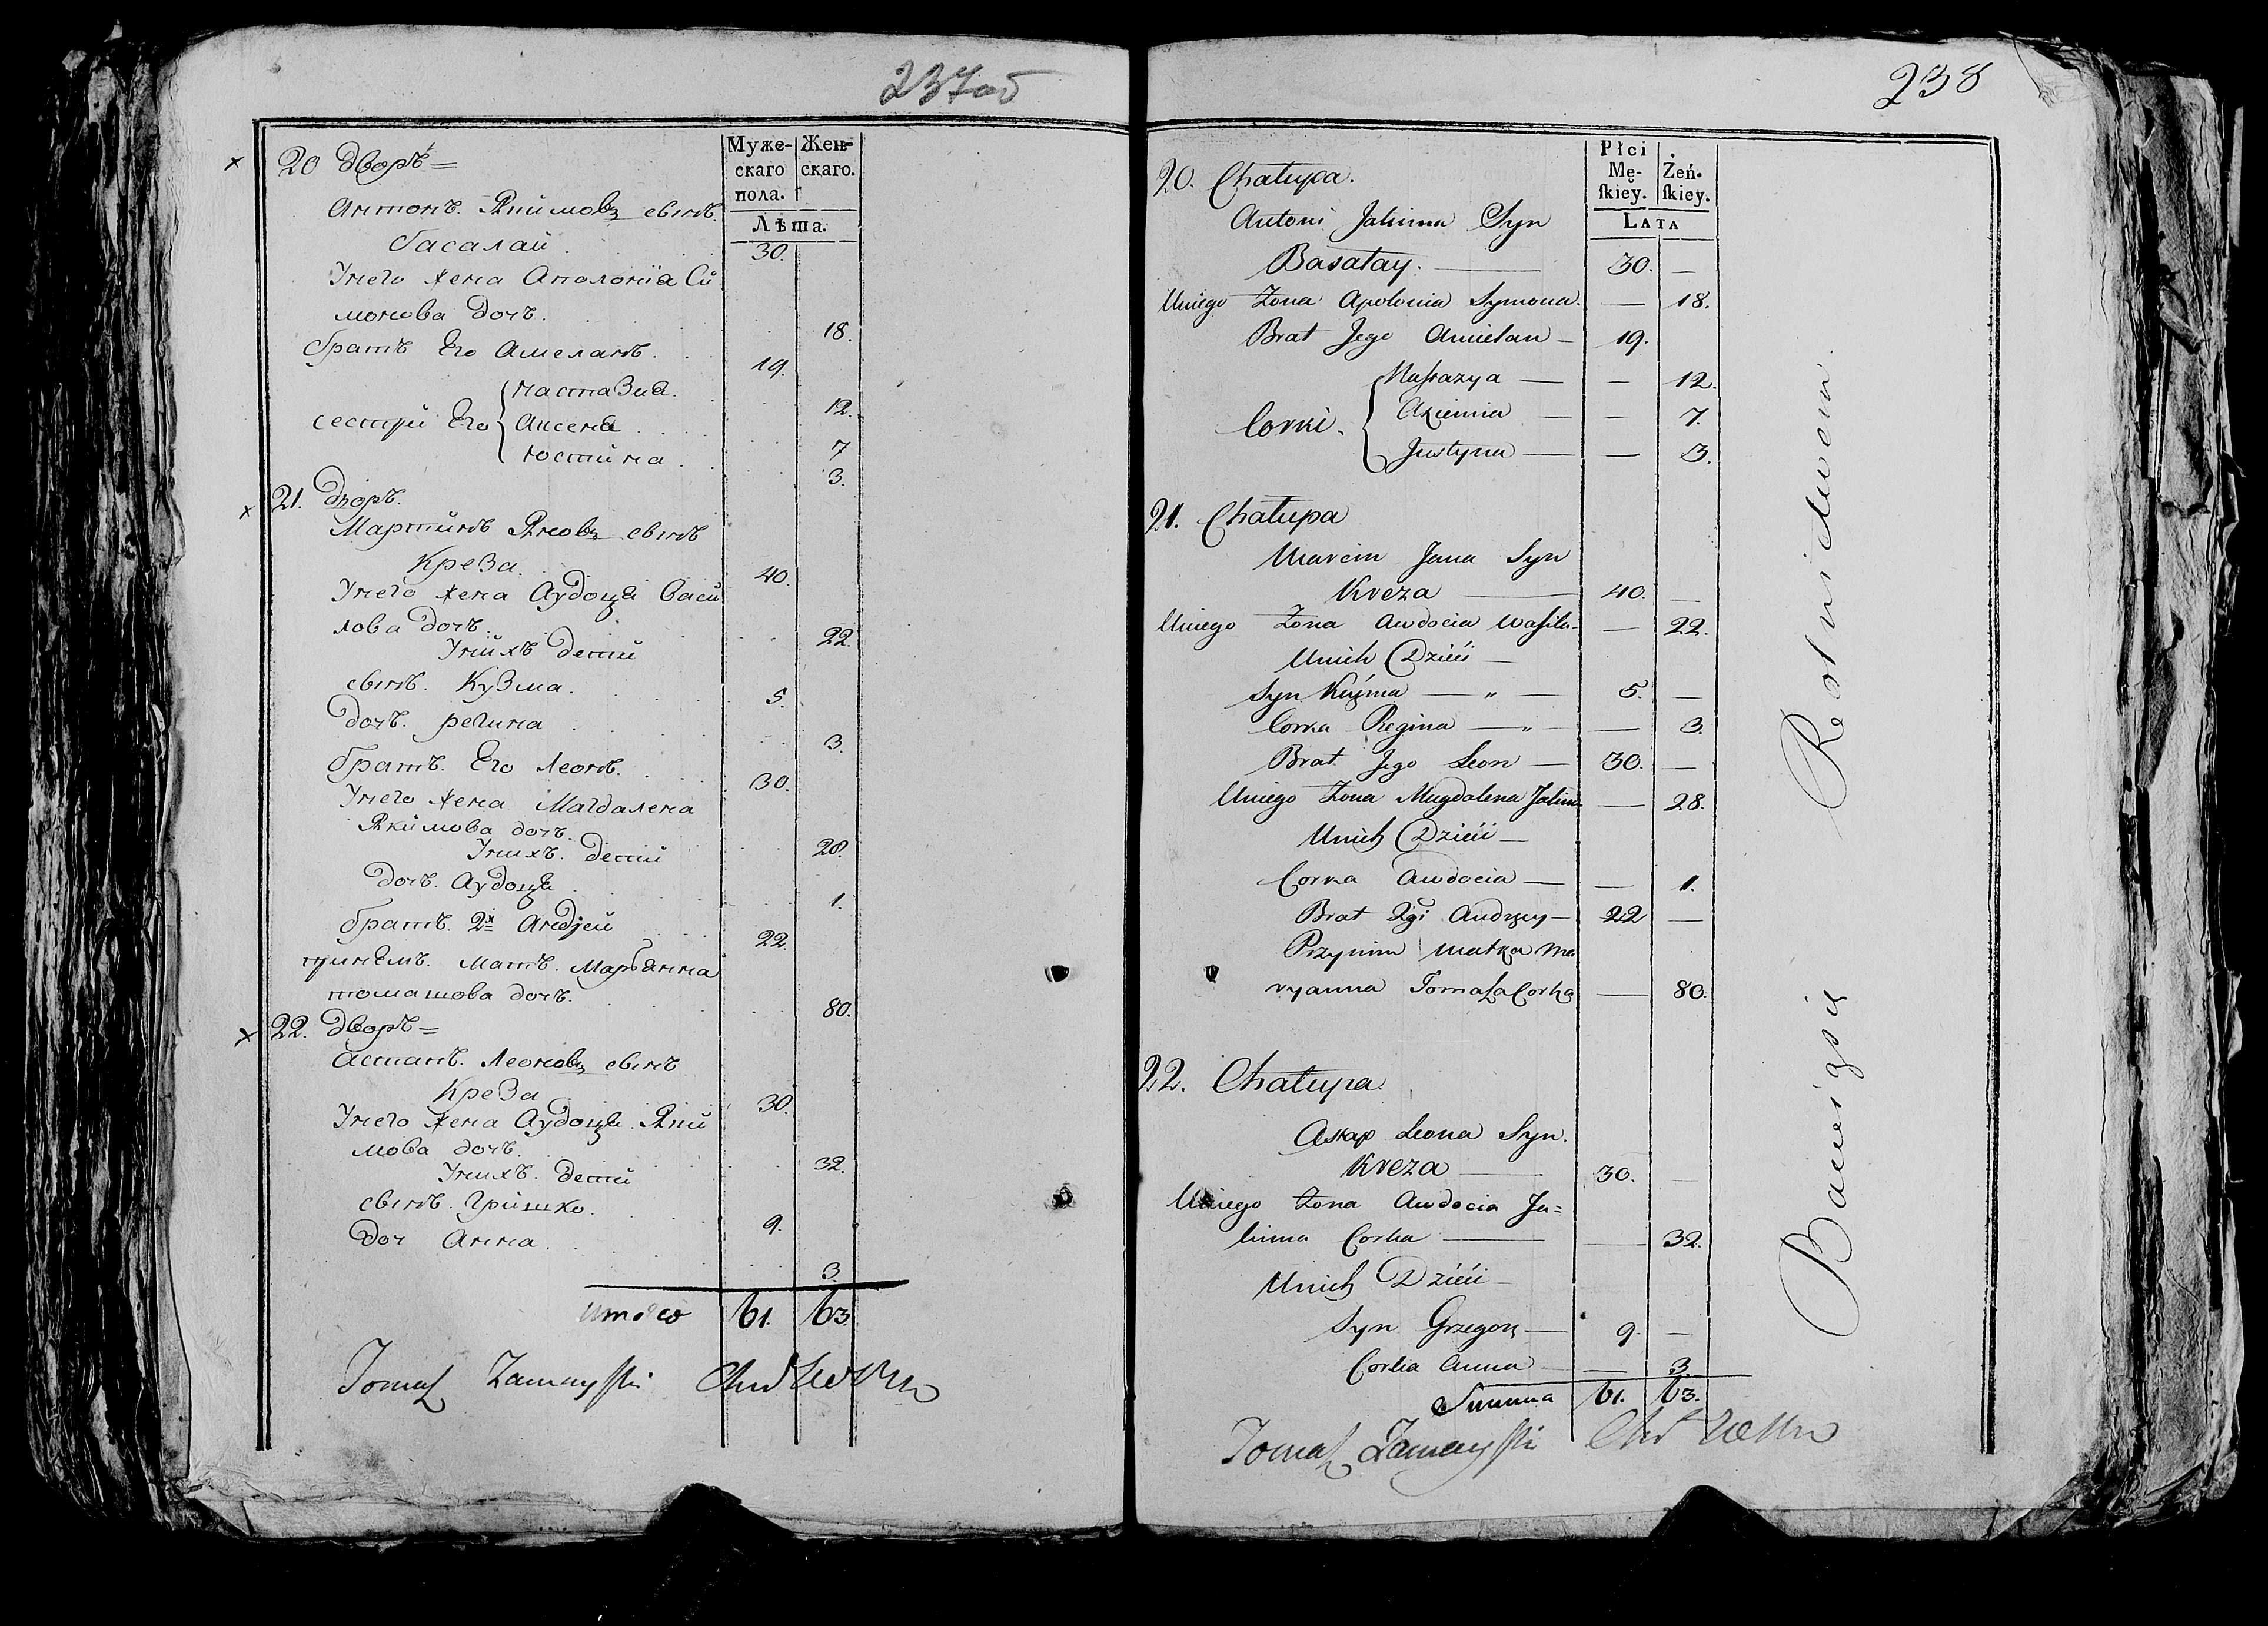 237об
Муже-
скаго
пола.
Жен-
скаго.
Лѣта.
20 дворъ=
Антонъ. Якимовъ сынъ.
басалай . 30.
Унего жена Аполонїа Си
монова дочъ. 18.
братъ Его Амеланъ. 19.
настазиа. 12.
сестри Его Аксеня 7
юстина. 3.
21. дворъ.
Мартинъ Яновъ сынъ
Креза. 40.
Унего жена Аудоця Васи
лова дочъ. 22.
Унихъ дети
сынъ. Кузма. 5.
дочъ. регина 3.
братъ. Его Леонъ. 30.
Унего жена Магдалена
Якимова дочъ. 28.
Унихъ. дети
дочъ. Аудоця 1.
братъ. 2й Андрей 22.
принемъ. матъ. Марьянна
томашова дочъ. 80.
22. дворъ=
Астапъ. Леоновъ сынъ
Креза 30.
Унего жена Аудоця. Яки
мова дочъ. 32.
Унихъ. дети
сынъ. Гришко. 9.
доч Анна. 3.
итого 61. 63
Tomasz
238
Płci
Mę-
ſkiey.
Żeń-
ſkiey.
LATA
20. Chałupa.
Antoni Jakima Syn
Basałay. — 30. —
Uniego Zona Apolonia Symona. — 18.
Brat Jego Amielan — 19.
Nastazya — — 12.
Corki. Axienia — — 7.
Justyna — — 3.
21. Chałupa
Marcin Jana Syn
Kreza — 40. —
Uniego Zona Awdocia Wasila. — 22.
Unich Dzieci —
Syn Kuźma — „ — 5. —
Corka Regina — „ — — 3.
Brat Jego Leon — 30. —
Uniego Zona Magdalena Jakim. — 28.
Unich Dzieci —
Corka Awdocia — — 1.
Brat 2gi Andrzey — 22 —
Przynim Matka Ma
ryanna Tomasza Corka — 80.
22. Chałupa.
Astap Leona Syn.
Kreza — 30. —
Uniego Zona Awdocia Ja=
kima Corka — — 32.
Unich Dzieci —
Syn Grzegorz — 9. —
Corka Anna — — 3.
Summa 61. 63.
Tomasz